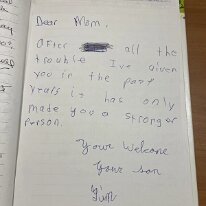 Dear Mom,
After all the
trouble I've given
you in the past
years it has only
made you a stronger
person.
Your Welcome
Your son